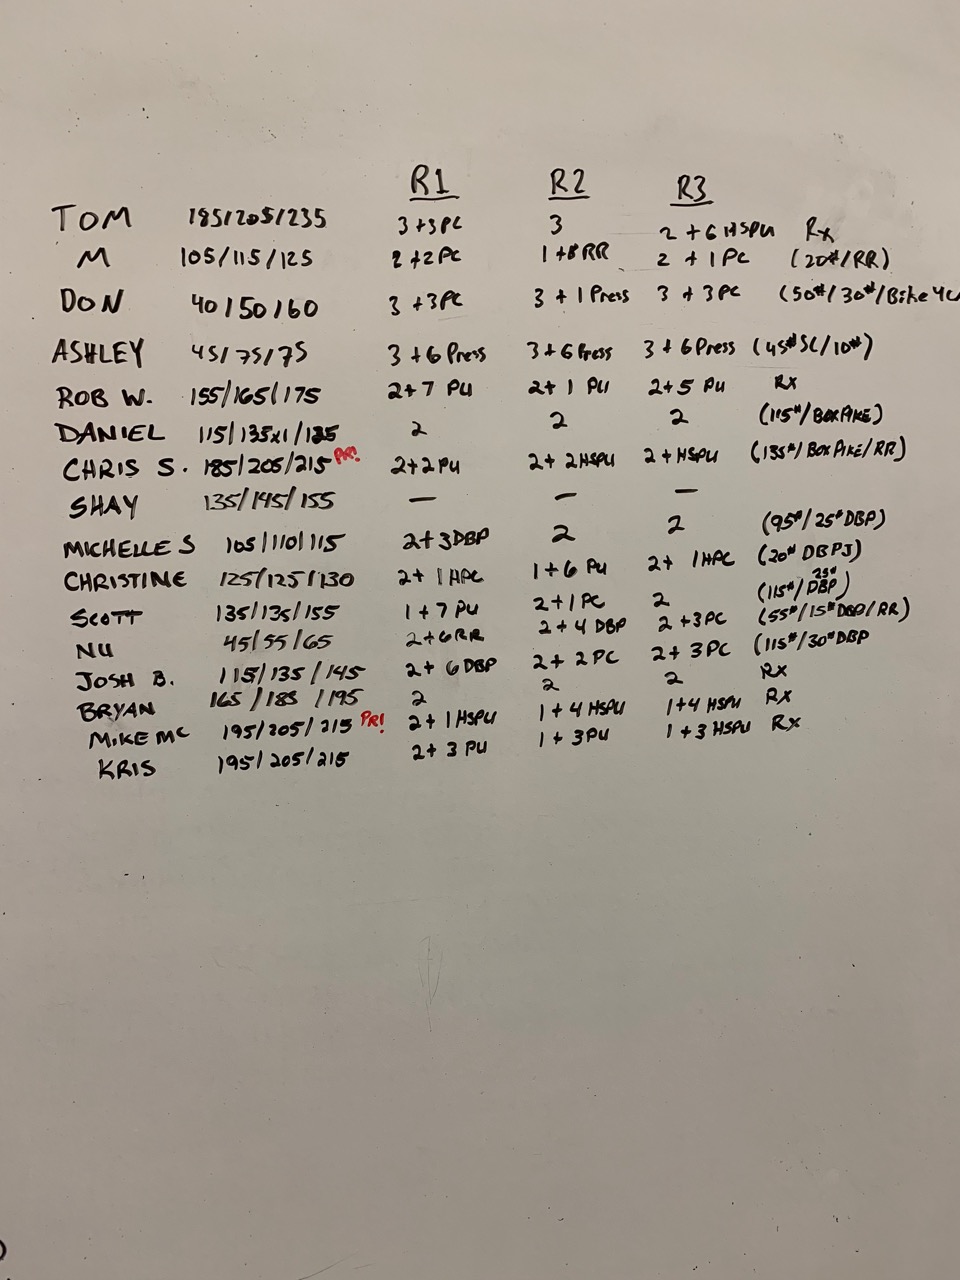 R1 R2 R3
TOM 185/205/235 3+3PC 3 2+6 HSPU Rx
M 105/115/125 2+2PC 1+8RR 2 + 1 PC (20#/RR)
DON 40/50/60 3 +3PC 3 + 1 Press 3 + 3 PC (50#/30#/Bike
ASHLEY 45/75/75 3+6 Press 3+6 Press 3+6 Press (45# SC/10#)
ROB W. 155/165/175 2+7 PU 2+ 1 PU 2+5 PU Rx
DANIEL 115/135x1/135 2 2 2 (115#/BOX PIKE)
CHRIS S. 185/205/215 PR! 2+2 PU 2+ 2HSPU 2+HSPU (135#/BOX PIKE/RR)
SHAY 135/145/155 — — —
MICHELLE S 105/110/115 2+ 3DBP 2 2 (95#/25# DBP)
CHRISTINE 125/125/130 2+ 1HPC 1+6 PU 2+ 1HPC (20# DBPJ)
SCOTT 135/135/155 1+7 PU 2+1PC 2 (115#/25# DBP)
NU 45/55/65 2+6RR 2+4 DBP 2+3PC (55#/15# DBP/RR)
JOSH B. 115/135/145 2+ 6 DBP 2+ 2PC 2+ 3PC (115#/30# DBP
BRYAN 165/185/195 2 2 2 Rx
MIKE MC 195/205/215 PR! 2+ 1HSPU 1+4 HSPU 1+4 HSPU Rx
KRIS 195/205/215 2+ 3 PU 1+3PU 1+3 HSPU Rx